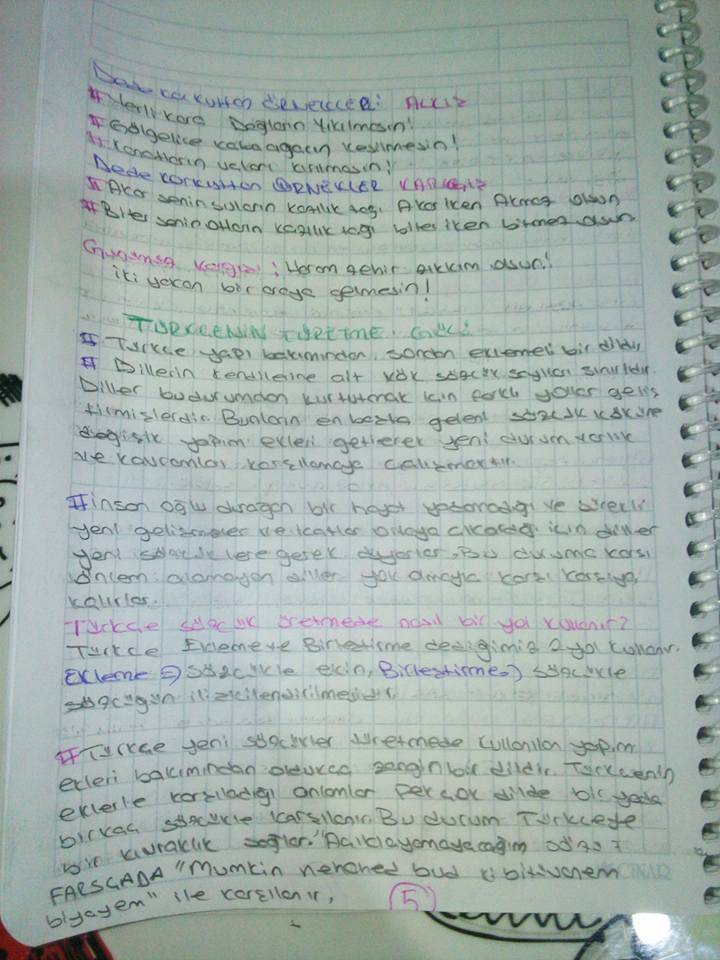 Dede korkuttan ÖRNEKLER: ALKIŞ
# Yerli kara Dağların Yıkılmasın!
# Gölgelice kabaağacın kesilmesin!
# Kanatların uçları kırılmasın!
Dede korkuttan ÖRNEKLER KARGIŞ
# Akar senin suların kazılık dağı Akar iken Akmaz olsun
# Biter senin otların kazılık dağı biter iken bitmez olsun
Günümüz Kargışı: Haram zehir zıkkım olsun!
iki yakan bir araya gelmesin!
TÜRKÇENİN TÜRETME GÜCÜ
# Türkçe yapı bakımından sondan eklemeli bir dildir
# Dillerin kendilerine ait kök sözcük sayıları sınırlıdır.
Diller bu durumdan kurtulmak için farklı yollar geliş
tirmişlerdir. Bunların en başta geleni sözcük köküne
değişik yapım ekleri getirerek yeni durum varlık
ve kavramları karşılamaya çalışmaktır.
# insan oğlu durağan bir hayat yaşamadığı ve sürekli
yeni gelişmeler ve icatlar ortaya çıkardığı için diller
yeni sözcüklere gerek duyarlar. Bu duruma karşı
önlem alamayan diller yok olmayla karşı karşıya
kalırlar.
Türkçe sözcük üretmede nasıl bir yol kullanır?
Türkçe Ekleme ve Birleştirme dediğimiz 2 yol kullanır.
Ekleme => sözcükle ekin, Birleştirme => sözcükle
sözcüğün ilişkilendirilmesidir
# Türkçe yeni sözcükler üretmede kullanılan yapım
ekleri bakımından oldukça zengin bir dildir. Türkçenin
eklerle karşıladığı anlamlar pek çok dilde bir yada
birkaç sözcükle karşılanır. Bu durum Türkçeye
bir kıvraklık sağlar. "Açıklayamayacağım
FARSÇADA "Mumkin nehahed bud ki bitivanem
biyayem" ile karşılanır,
5